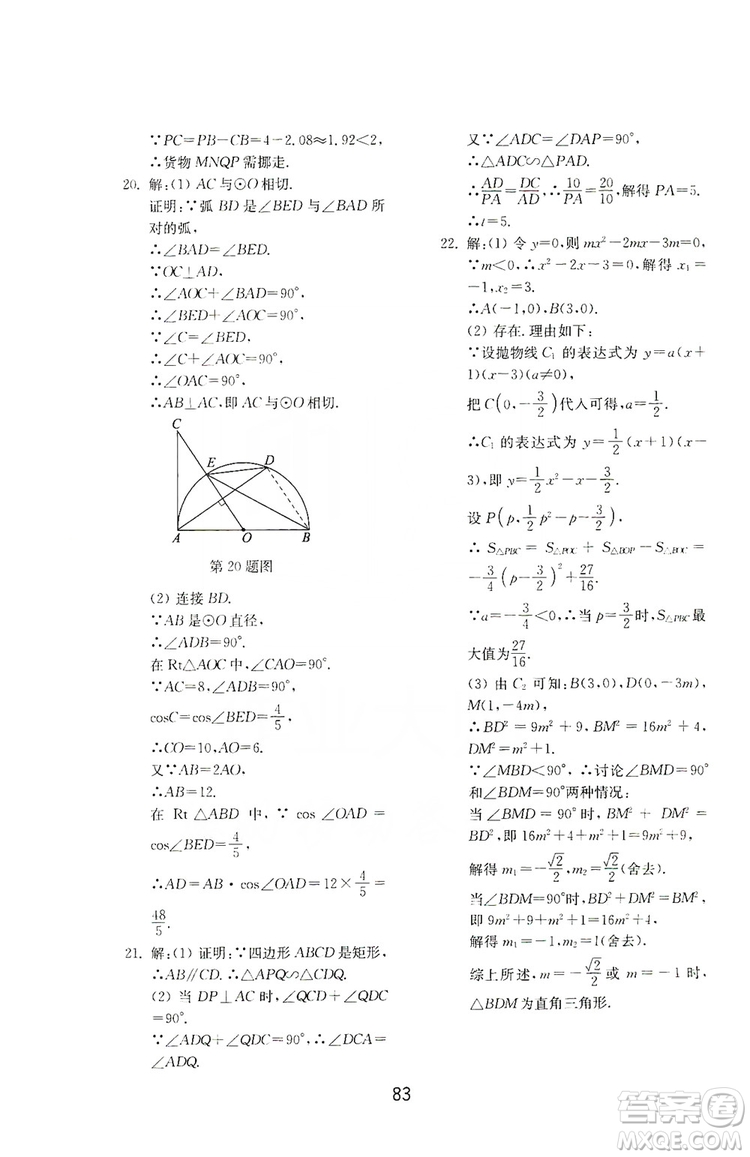 ∵PC=PB-CB=4-2.08≈1.92<2,
∴货物 MNQP 需挪走.
20. 解:(1) AC 与⊙O 相切.
证明:∵弧 BD 是∠BED 与∠BAD 所
对的弧,
∴∠BAD=∠BED.
∵OC⊥AD,
∴∠AOC+∠BAD=90°,
∴∠BED+∠AOC=90°,
∵∠C=∠BED,
∴∠C+∠AOC=90°,
∴∠OAC=90°,
∴AB⊥AC,即 AC 与⊙O 相切.
C
E
D
A
O
B
第 20 题图
(2) 连接 BD.
∵AB 是⊙O 直径,
∴∠ADB=90°.
在 Rt△AOC 中,∠CAO=90°.
∵AC=8,∠ADB=90°,
cosC=cos∠BED=4/5,
∴CO=10,AO=6.
又∵AB=2AO,
∴AB=12.
在 Rt △ABD 中, ∵ cos ∠OAD =
cos∠BED=4/5,
∴AD=AB·cos∠OAD=12×4/5=
48/5.
21. 解:(1) 证明:∵四边形 ABCD 是矩形,
∴AB∥CD. ∴△APQ∽△CDQ.
(2) 当 DP⊥AC 时,∠QCD+∠QDC
=90°.
∵∠ADQ+∠QDC=90°,∴∠DCA=
∠ADQ.
又∵∠ADC=∠DAP=90°,
∴△ADC∽△PAD.
∴AD/PA=DC/AD,∴10/PA=20/10,解得 PA=5.
∴t=5.
22. 解:(1) 令 y=0,则 mx²-2mx-3m=0,
∵m<0,∴x²-2x-3=0,解得 x₁=
-1,x₂=3.
∴A(-1,0),B(3,0).
(2) 存在.理由如下:
∵设抛物线 C₁ 的表达式为 y=a(x+
1)(x-3)(a≠0),
把 C(0,-3/2)代入可得,a=1/2.
∴C₁ 的表达式为 y=1/2(x+1)(x-
3),即 y=1/2x²-x-3/2.
设 P(p,1/2p²-p-3/2),
∴ S△PBC = S△POC + S△BOP - S△BOC =
-3/4(p-3/2)²+27/16.
∵a=-3/4<0,∴当 p=3/2时,S△PBC最
大值为27/16.
(3) 由 C₂ 可知:B(3,0),D(0,-3m),
M(1,-4m),
∴BD²=9m²+9,BM²=16m²+4,
DM²=m²+1.
∵∠MBD<90°,∴讨论∠BMD=90°
和∠BDM=90°两种情况:
当∠BMD=90°时,BM²+DM²=
BD²,即 16m²+4+m²+1=9m²+9,
解得 m₁=-√2/2,m₂=√2/2(舍去).
当∠BDM=90°时,BD²+DM²=BM²,
即 9m²+9+m²+1=16m²+4,
解得 m₁=-1,m₂=1(舍去).
综上所述,m=-√2/2或 m=-1 时,
△BDM 为直角三角形.
83
答案圈
MXQE.COM